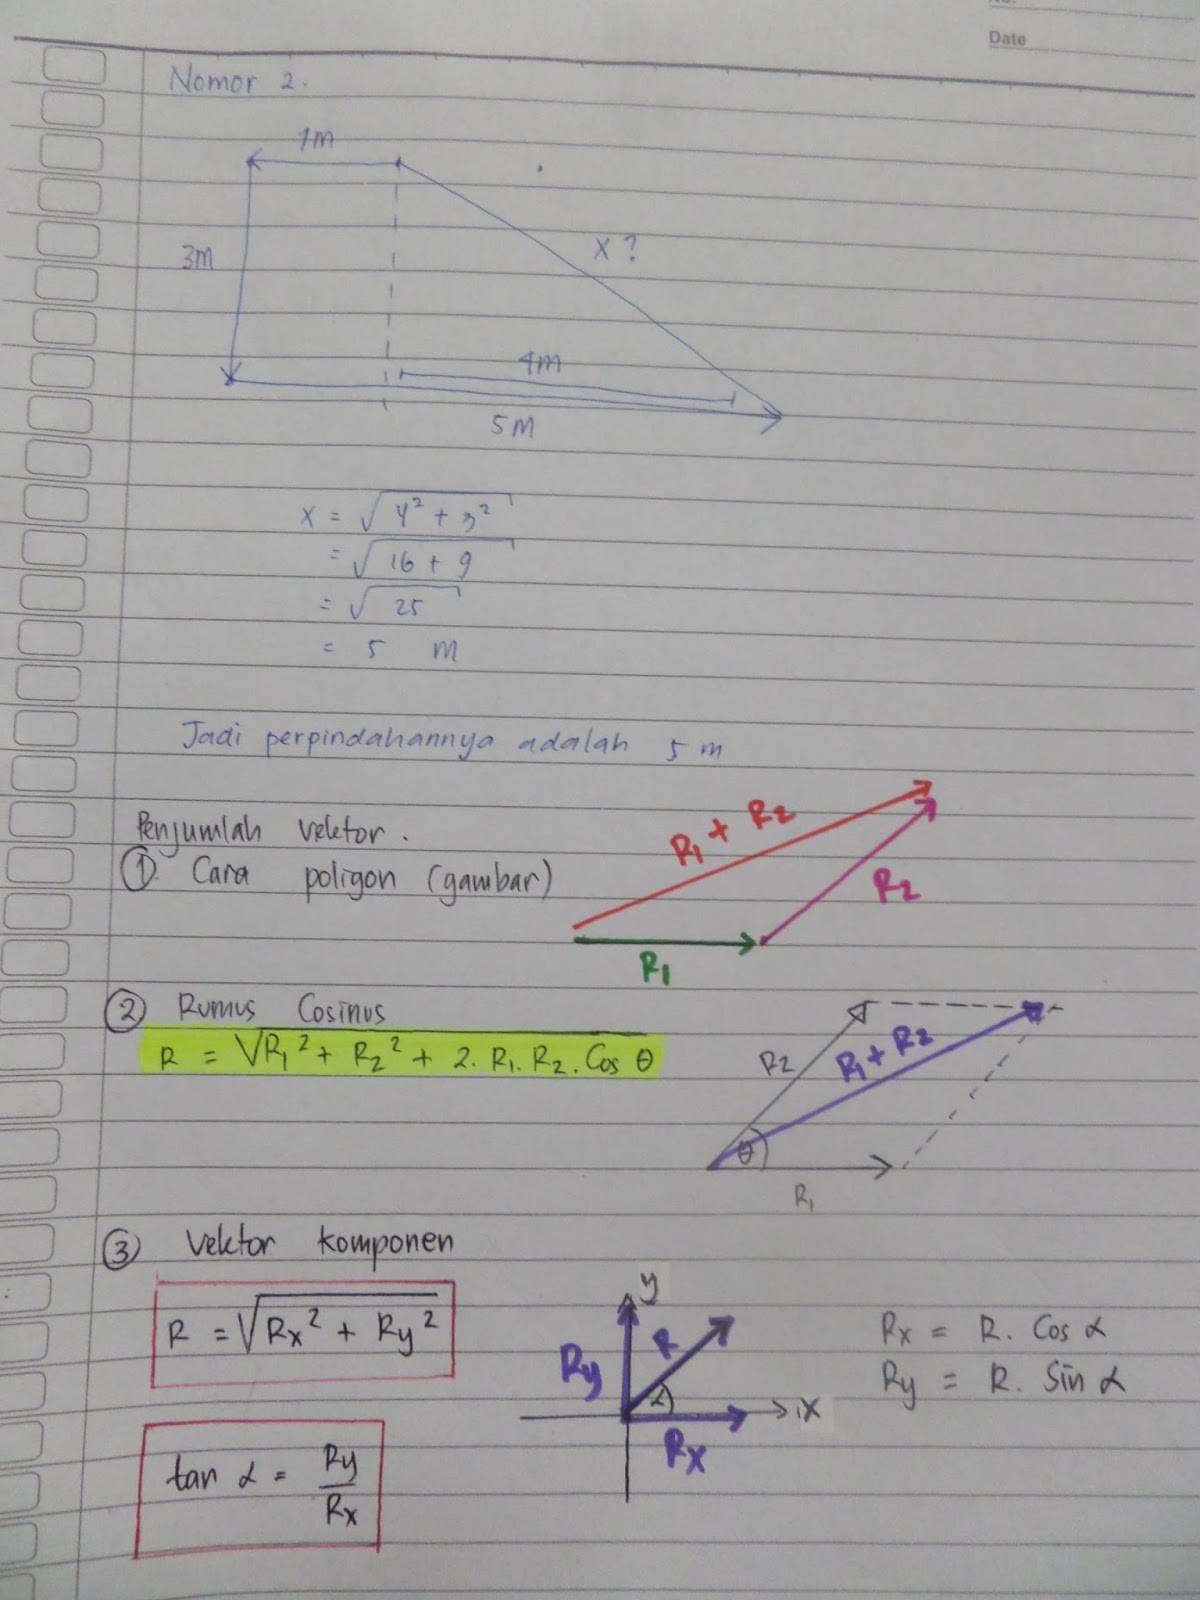 Date
Nomor 2.
1m
3m
x ?
4m
5 m
x = √4² + 3²
= √16 + 9
= √25
= 5 m
Jadi perpindahannya adalah 5 m
Penjumlah vektor.
① Cara poligon (gambar)
R₁ + R₂
R₂
R₁
② Rumus Cosinus
R = √R₁² + R₂² + 2. R₁. R₂. Cos θ
R₂
R₁ + R₂
θ
R₁
③ Vektor komponen
R = √Rx² + Ry²
y
Ry
R
α
x
Rx
Rx = R. Cos α
Ry = R. Sin α
tan α = Ry/Rx